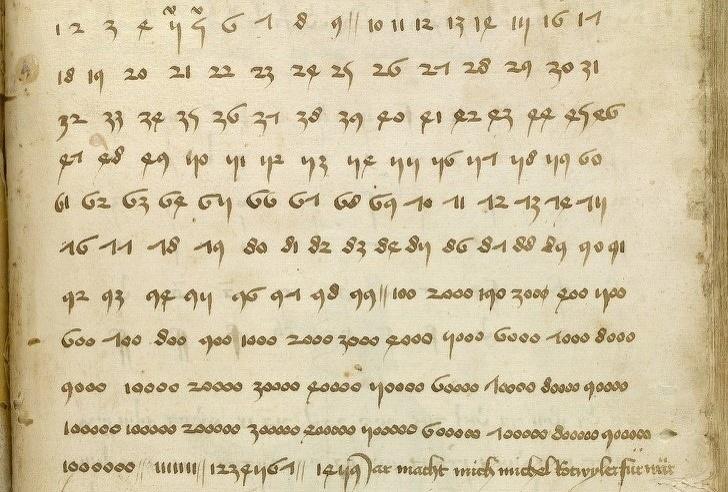 1 2 3 4 5 5 6 7 8 9 // 10 11 12 13 14 15 16 17
18 19 20 21 22 23 24 25 26 27 28 29 30 31
32 33 34 35 36 37 38 39 40 41 42 43 44 45 46
47 48 49 50 51 52 53 54 55 56 57 58 59 60
61 62 63 64 65 66 67 68 69 70 71 72 73 74 75
76 77 78 79 80 81 82 83 84 85 86 87 88 89 90 91
92 93 94 95 96 97 98 99 // 100 2000 190 3000 400 500
600 700 800 900 1000 2000 3000 4000 5000 6000 7000 8000
9000 10000 20000 30000 40000 50000 60000 70000 80000 90000
100000 100000 200000 300000 400000 500000 600000 700000 800000 900000
1000000 // // 1234567 // ar macht mich michel Rotwyler für war